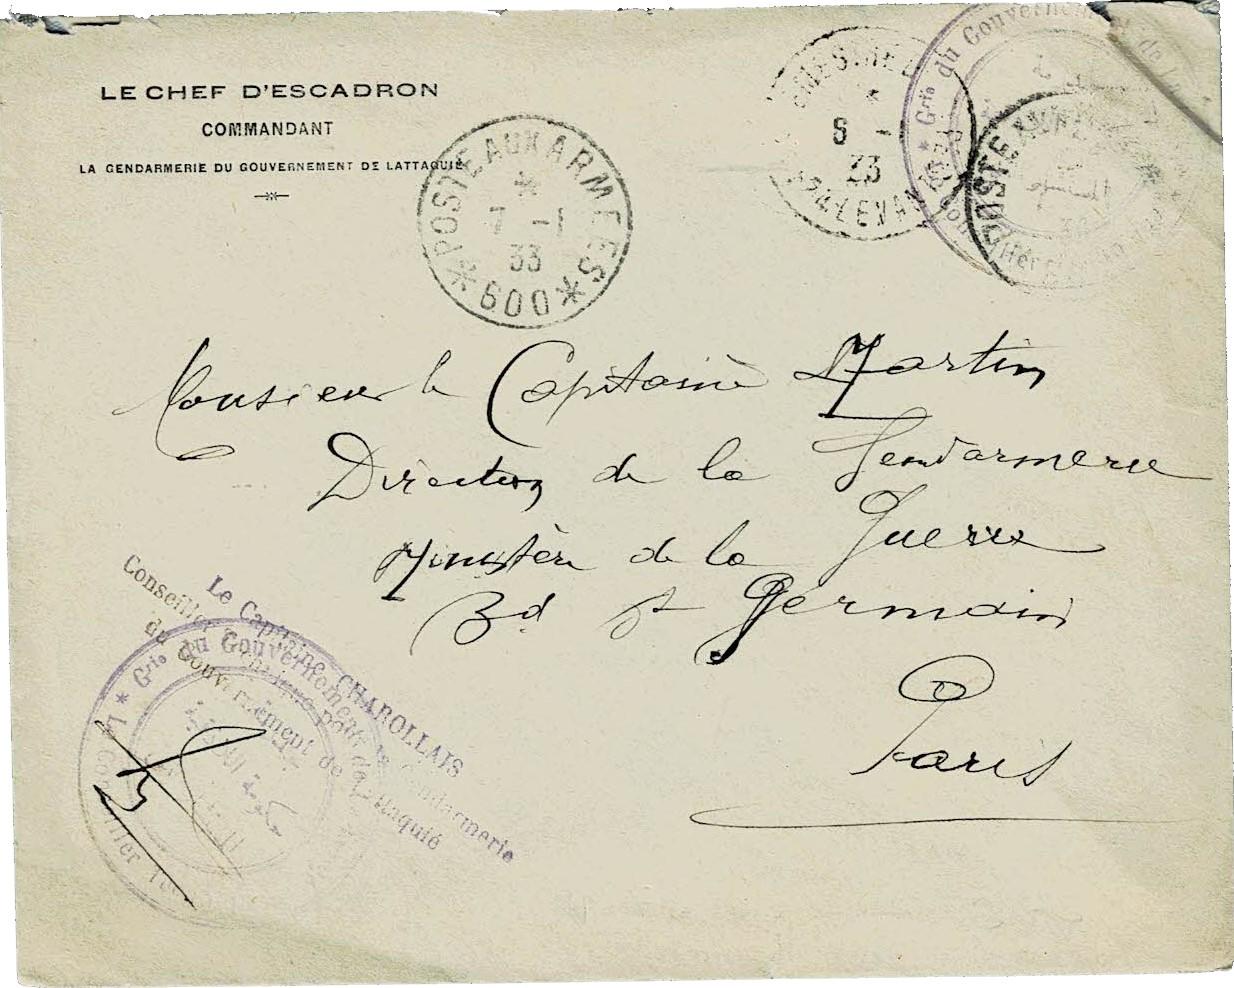 LE CHEF D'ESCADRON
COMMANDANT
LA GENDARMERIE DU GOUVERNEMENT DE LATTAQUIÉ
* POSTE AUX ARMEES *
*
7 - 1
33
600
33
LEVANT
Grie du Gouvernement de
POSTE AUX
Monsieur le Capitaine Martin
Direction de la Gendarmerie
Ministère de la Guerre
Bd St Germain
Paris
Le Capitaine CHAROLLAIS
Conseiller pour la Gendarmerie
du Gouvernement de Lattaquié
* Grie du Gouvernement de
Le Conseiller
حكومة